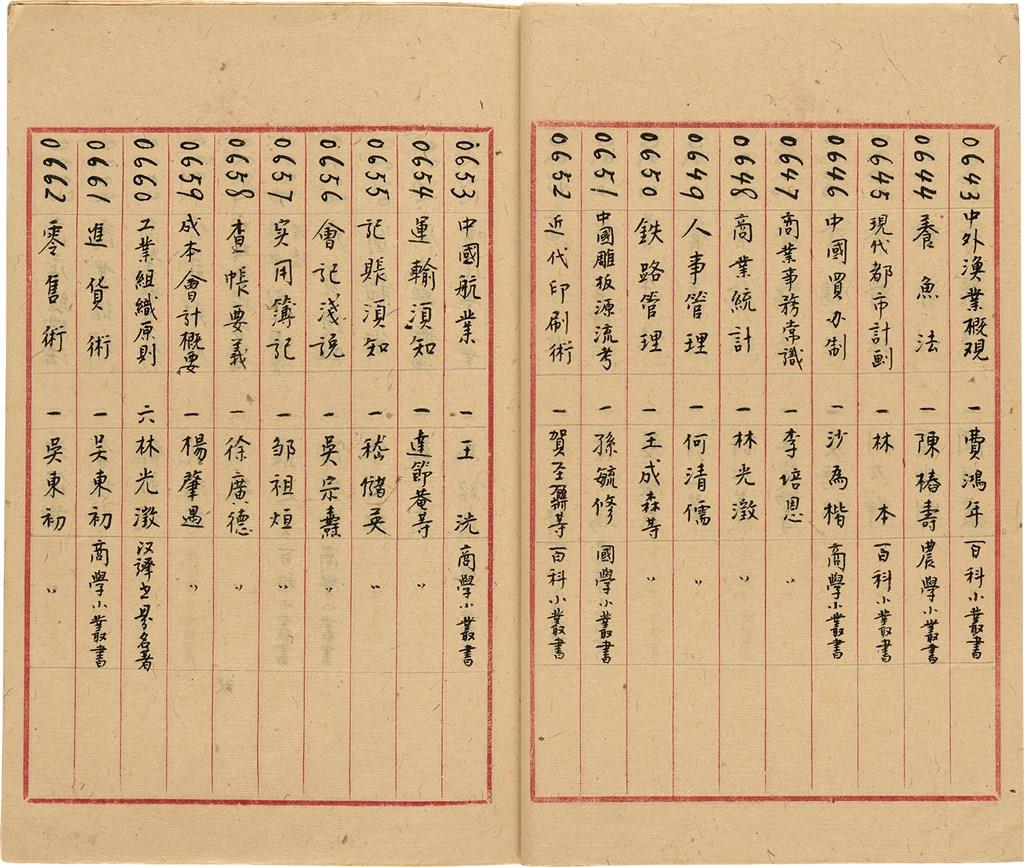 0643 中外漁業概观 一 費鴻年 百科小叢書
0644 養魚法 一 陳椿壽 農學小叢書
0645 現代都市計劃 一 林本 百科小叢書
0646 中國買办制 一 沙為楷 商學小叢書
0647 商業事務常識 一 李培恩 〃
0648 商業統計 一 林光澂 〃
0649 人事管理 一 何清儒 〃
0650 鉄路管理 一 王成森等 〃
0651 中國雕板源流考 一 孫毓修 國學小叢書
0652 近代印刷術 一 賀聖鼐等 百科小叢書
0653 中國航業 一 王洸 商學小叢書
0654 運輸須知 一 達節菴等 〃
0655 記賬須知 一 嵇儲英 〃
0656 會記淺说 一 吳宗燾 〃
0657 实用簿記 一 邹祖烜 〃
0658 查帳要義 一 徐廣德 〃
0659 成本會計概要 一 楊肇遇 〃
0660 工業組織原則 六 林光澂 汉譯世界名著
0661 進貨術 一 吴東初 商學小叢書
0662 零售術 一 吳東初 〃